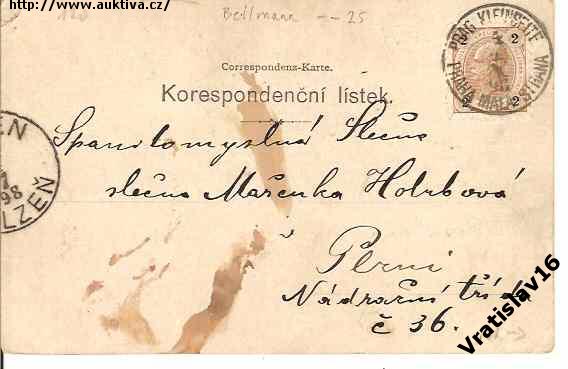 http://www.auktiva.cz/
Bellmann -- 25
PRAG KLEINSEITE
PRAHA MALÁ STRANA
2 2
2 2
Correspondenz-Karte.
Korespondenční lístek.
PLZEŇ
98
Slečna
slečna Mařenka Holubová
v Plzni
Nádražní třída
č 36.
Vratislav16